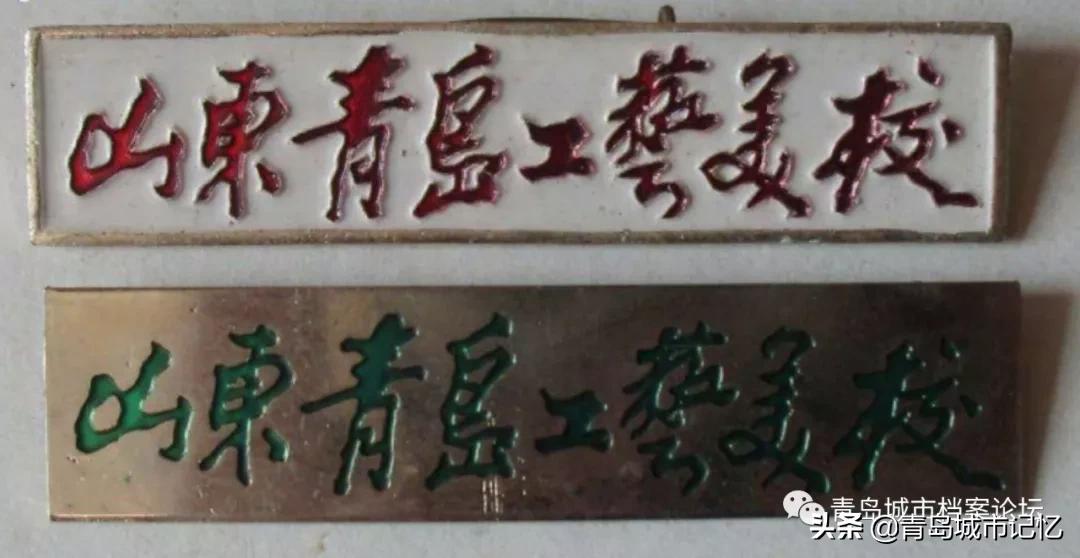 山東青島工藝美校
山東青島工藝美校
青岛城市档案论坛
头条 @青岛城市记忆